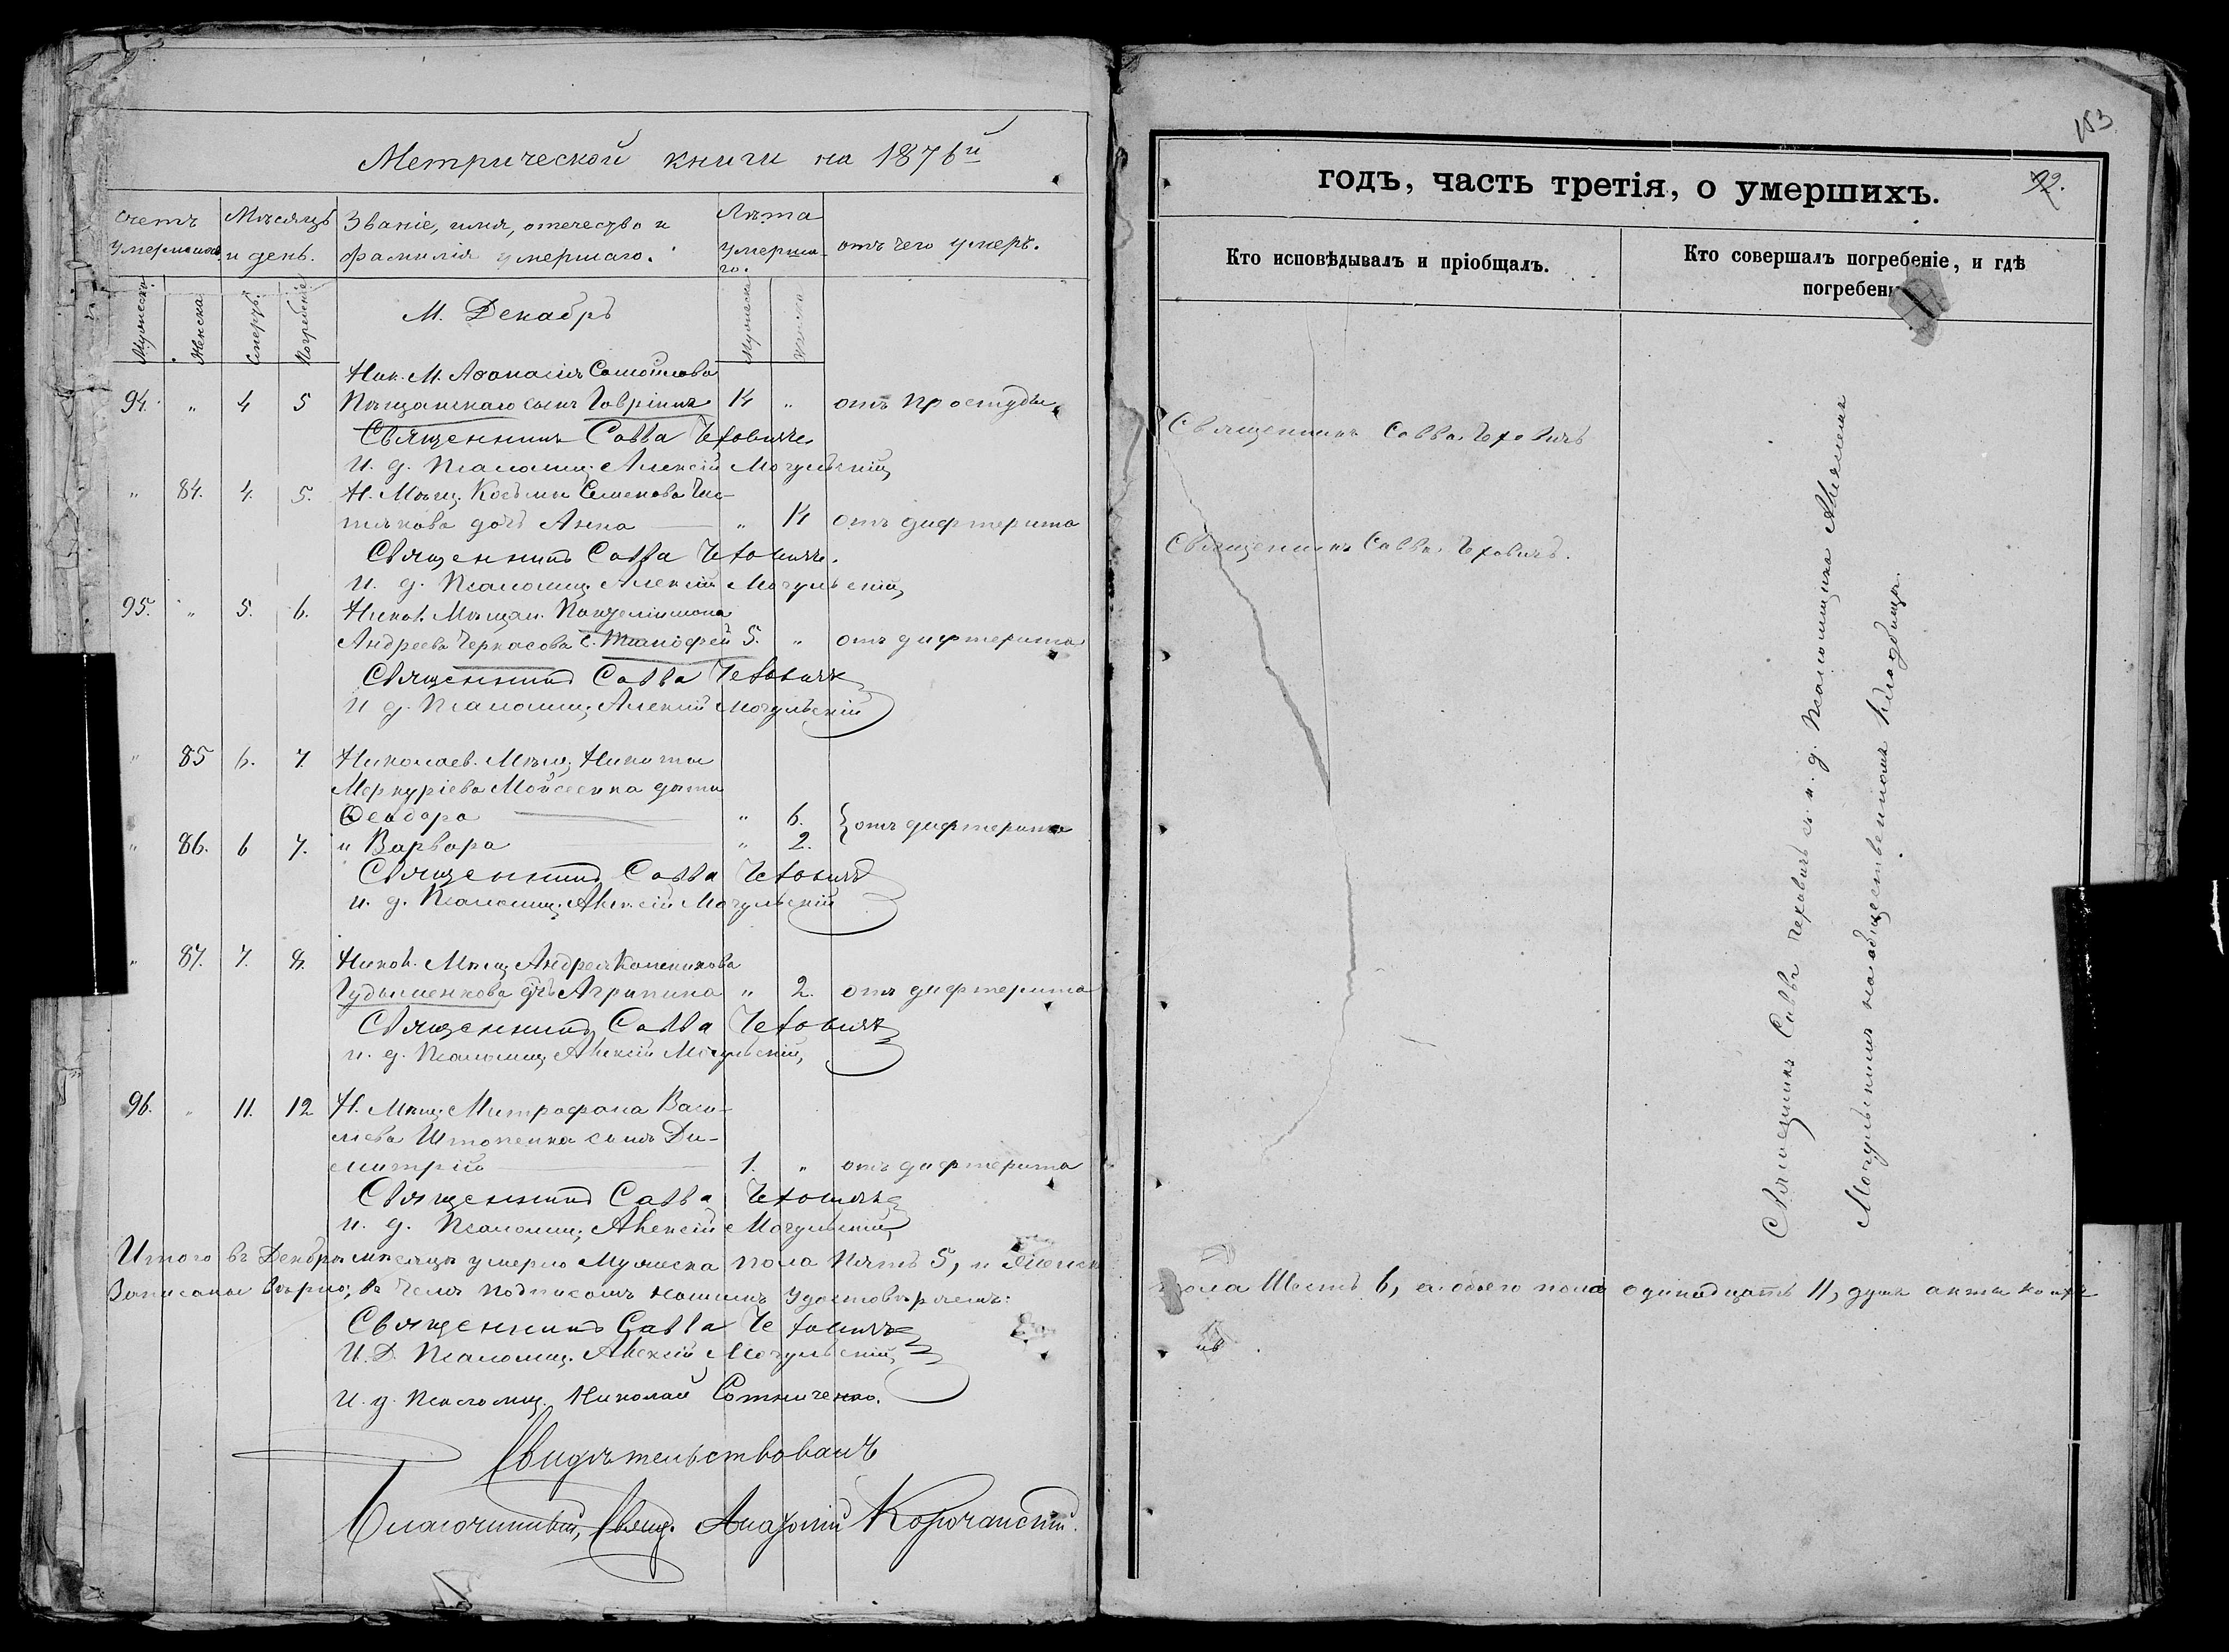 Метрической книги на 1876й
Счетъ умершихъ.
Мѣсяцъ и день.
Званіе, имя, отечество и фамилія умершаго.
Лѣта умершаго.
отъ чего умеръ.
Мужеска.
Женска
Смерть.
Погребеніе
Мужеска
Женска
М. Декабрь
Ник. М. Аѳонасія Самойлова
94. " 4 5 Пѣщанскаго сынъ Гавріилъ 14 " отъ простуды.
Священникъ Савва Чеховичъ
И. д. Псаломщ. Алексій Могульскій
" 84. 4. 5. Н. Мѣщ. Косьмы Семенова Чис-
тякова дочь Анна " 14 отъ дифтерита
Священникъ Савва Чеховичъ.
И. д. Псаломщ. Алексій Могульскій
95. " 5. 6. Никол. Мѣщан. Пантелімона
Андреева Черкасова с. Тимофей 5. " отъ дифтерита
Священникъ Савва Чеховичъ
И д. Псаломщ. Алексій Могульскій
" 85 6. 7. Николаев. Мѣщ. Никиты
Меркуріева Мойсеенка дѣти
Ѳеодора " 6. } отъ дифтерита
" 86. 6 7. и Варвара " 2.
Священникъ Савва Чеховичъ
и. д. Псаломщ. Алексій Могульскій
" 87. 7. 8. Никол. Мѣщ. Андрея
дчь Агрипина " 2. отъ дифтерита
Священникъ Савва Чеховичъ
и. д. Псаломщ. Алексій Могульскій,
96. " 11. 12 Н. Мѣщ. Митрофана Васи-
лiева Штопенка сынъ Ди-
митрій 1. " отъ дифтерита
Священникъ Савва Чеховичъ
и. д. Псаломщ. Алексій Могульскій
Итого въ Декабрѣ мѣсяцѣ умерло Мужеска пола Пять 5, и Женск
Записаны вѣрно, въ чемъ подписомъ нашимъ удостовѣряемъ:
Священникъ Савва Чеховичъ
И. Д. Псаломщ. Алексій Могульскій
И. д. Псаломщ. Николай Сотниченко.
Свидѣтельствовалъ
Благочинный, Свящ. Анатолій Корочанскій.
153
92.
годъ, часть третія, о умершихъ.
Кто исповѣдывалъ и пріобщалъ.
Кто совершалъ погребеніе, и гдѣ
погребены
Священникъ Савва Чеховичъ
Священникъ Савва Чеховичъ.
Священникъ Савва Чеховичъ съ и. д. Псаломщика Алексіемъ
Могульскимъ на общественномъ кладбищѣ.
пола Шесть 6, а обоего пола одинадцать 11, душъ акты коихъ